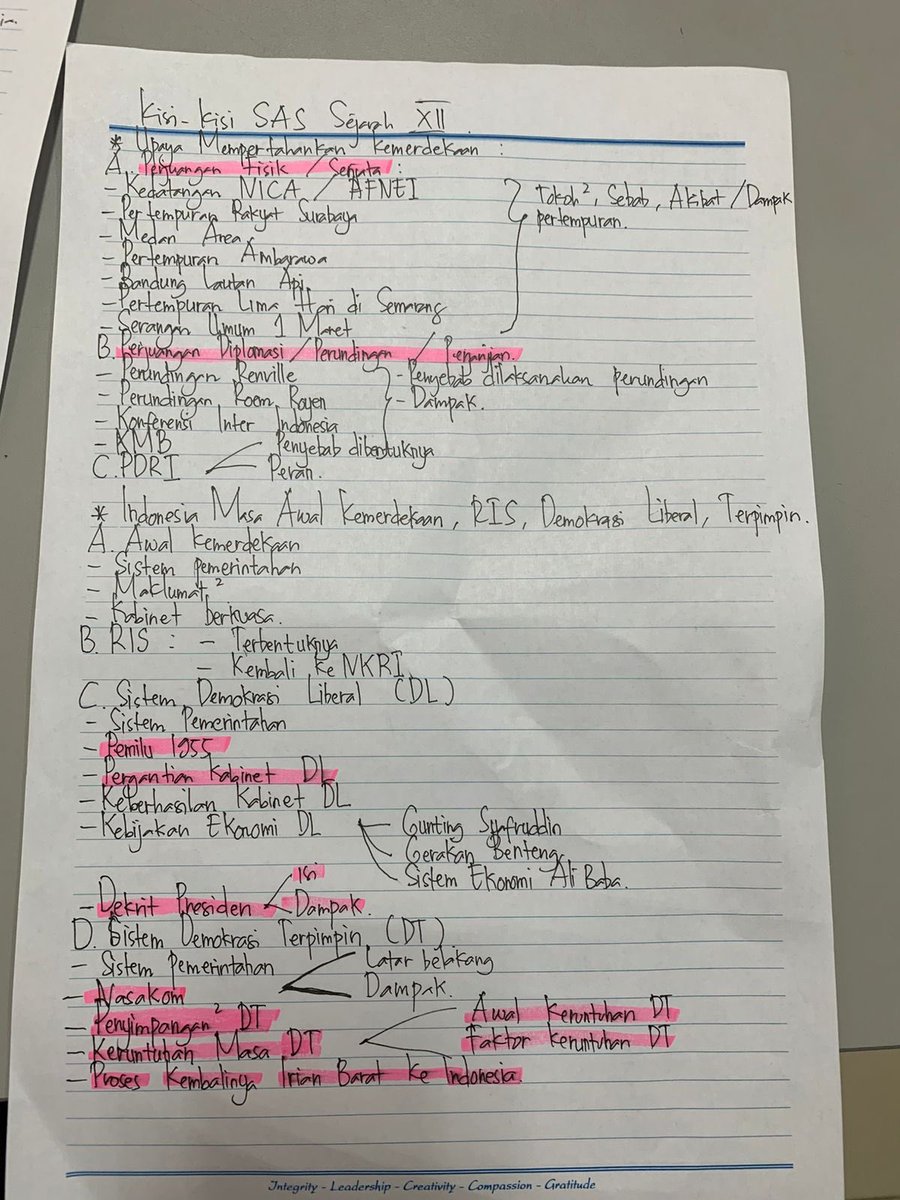 Kisi-kisi SAS Sejarah XII
* Upaya Mempertahankan Kemerdekaan :
A. Perjuangan Fisik / Senjata :
- Kedatangan NICA / AFNEI
- Pertempuran Rakyat Surabaya
- Medan Area
- Pertempuran Ambarawa
- Bandung Lautan Api
- Pertempuran Lima Hari di Semarang
- Serangan Umum 1 Maret
Tokoh², Sebab, Akibat / Dampak
pertempuran.
B. Perjuangan Diplomasi / Perundingan / Perjanjian.
- Perundingan Renville
- Perundingan Roem Royen
- Konferensi Inter Indonesia
- KMB
- Penyebab dilaksanakan perundingan
- Dampak.
C. PDRI
Penyebab dibentuknya
Peran.
* Indonesia Masa Awal Kemerdekaan, RIS, Demokrasi Liberal, Terpimpin.
A. Awal kemerdekaan
- Sistem pemerintahan
- Maklumat²
- Kabinet berkuasa.
B. RIS : - Terbentuknya
- Kembali ke NKRI
C. Sistem Demokrasi Liberal (DL)
- Sistem Pemerintahan
- Pemilu 1955
- Pergantian Kabinet DL
- Keberhasilan Kabinet DL
- Kebijakan Ekonomi DL
Gunting Syafruddin
Gerakan Benteng
Sistem Ekonomi Ali Baba.
- Dekrit Presiden
Isi
Dampak.
D. Sistem Demokrasi Terpimpin (DT)
- Sistem Pemerintahan
- Nasakom
Latar belakang
Dampak.
- Penyimpangan² DT
- Keruntuhan Masa DT
Awal Keruntuhan DT
Faktor Keruntuhan DT
- Proses Kembalinya Irian Barat ke Indonesia.
Integrity - Leadership - Creativity - Compassion - Gratitude